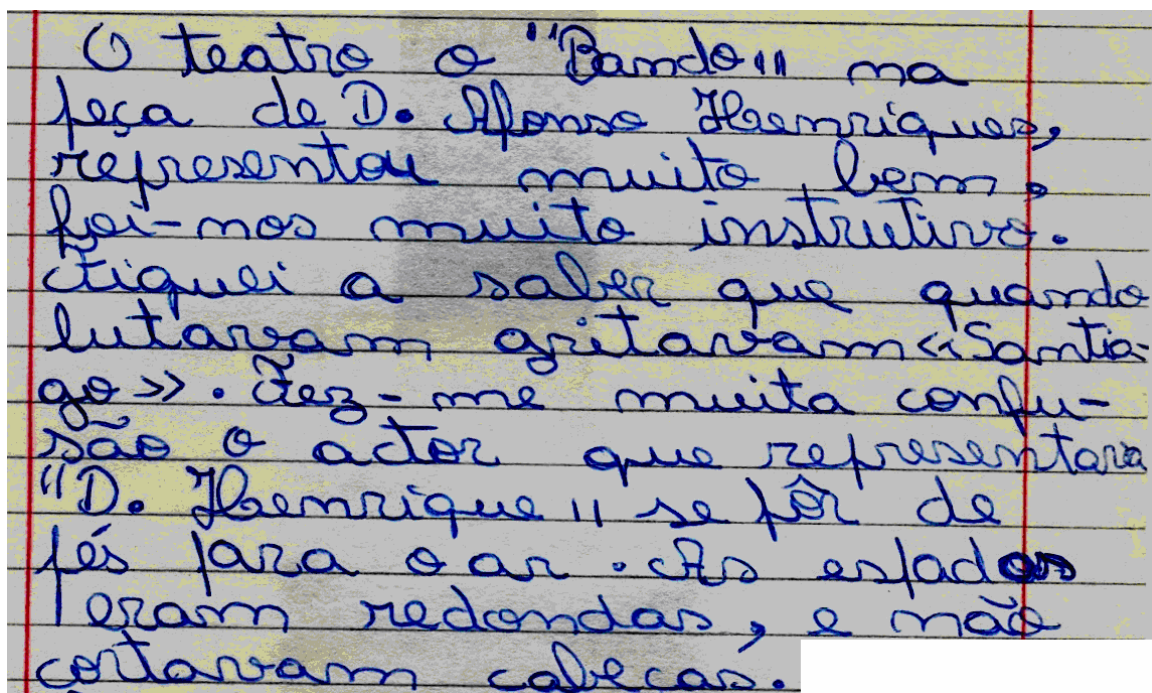 O teatro o "Bando" na
peça de D. Afonso Henriques,
representou muito bem,
foi-nos muito instrutivo.
Fiquei a saber que quando
lutavam gritavam «Santia-
go». Fez-me muita confu-
são o actor que representava
"D. Henrique" se pôr de
pés para o ar. As espadas
eram redondas, e não
cortavam cabeças.